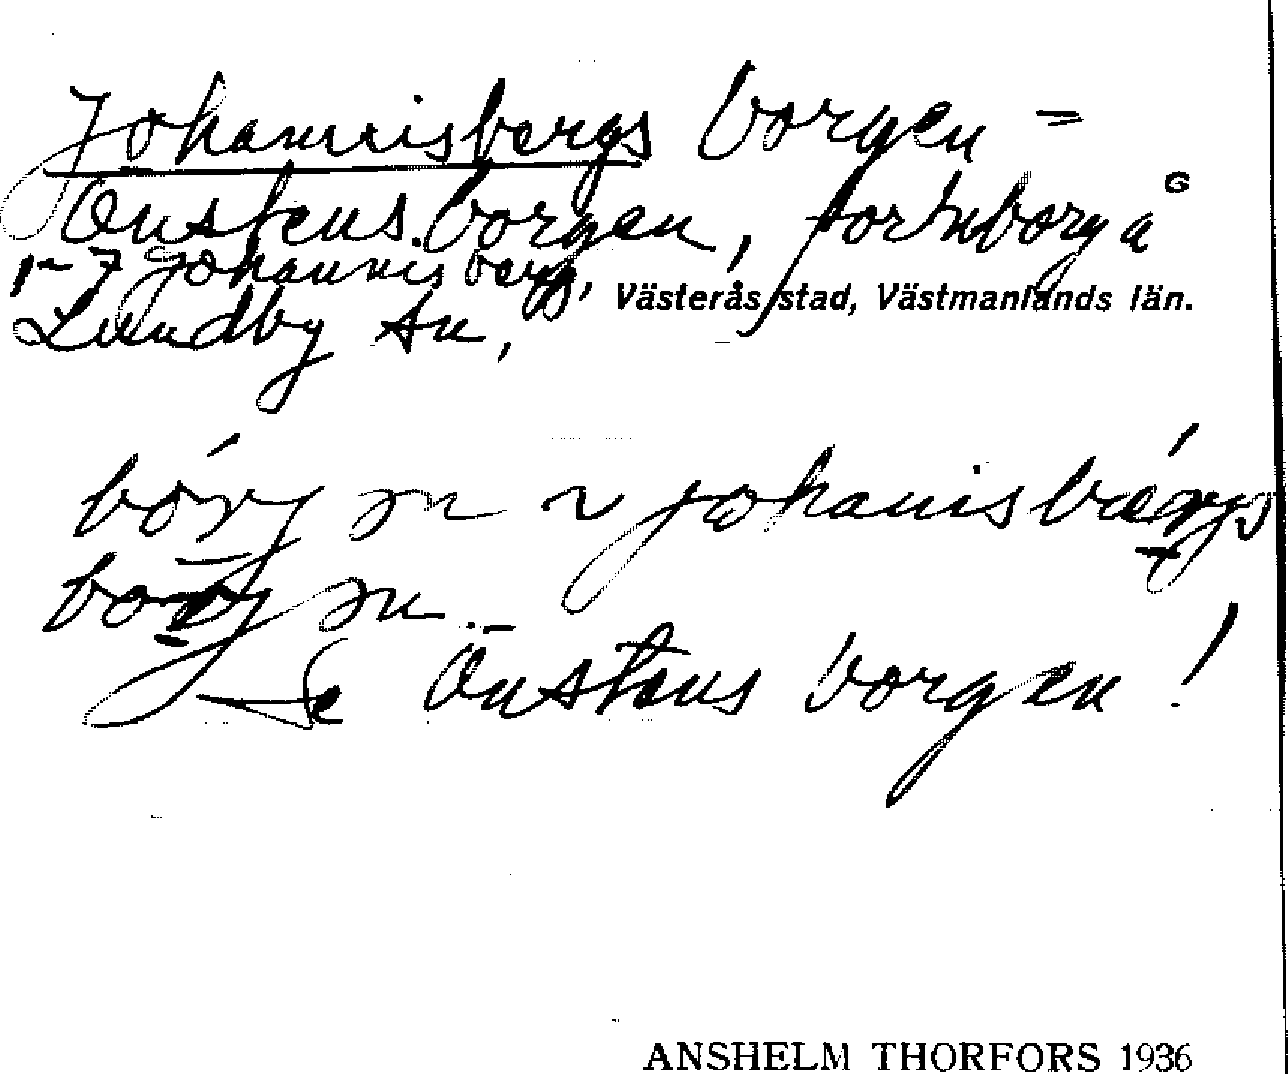 Johannisbergs borgen =
Önstens borgen, fornborg å
1-7 Johannisberg,
Västerås stad, Västmanlands län.
Lundby sn,
bórj m ~ johanisbærjs
borj m
Se Önstens borgen!
ANSHELM THORFORS 1936